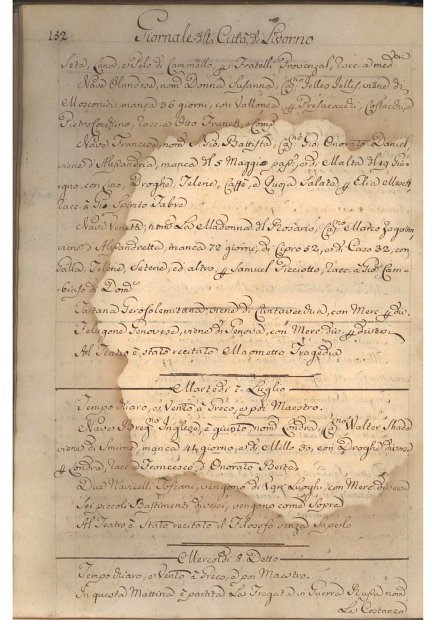 152 Giornale della Città di Livorno
Seta, Lana, e Pelo di Cammello, per Fratelli Provenzal, racc. a med.mi
Nave Olandese, nom. Donna Susanna, Cap.no Jelles Jellis, viene di
Mosconisi, manca 36 giorni, con Vallonea
Pietro racc. a Otto Franck, e Comp.
Nave Francese, nom. S. Gio. Battista, Cap.no Gio. Onorato Daniel,
viene d'Alessandria, manca dl 5 Maggio pass., e di Malta dl 19 Giu-
gno, con Lino, Droghe, Telerie, Caffè, e Quoja Salata, per Elia
racc. a Gio. Spirito Fabre
Nave Veneta, nom. La Madonna dl Rosario, Cap.no Marco
viene d'Alessandretta, manca 72 giorni, di Cipro 52, e di Caso 32, con
Galla, Telerie, Seterie, ed altro per Samuel Picciotto, racc. a Gio. Cam-
biaso di Dom.co
Tartana Gerosolemitana, viene di Civitavecchia, con Merc. per div.
Pelagone Genovese, viene di Genova, con Merc. div. per diversi
Al Teatro è stato recitato Maometto Tragedia
Martedì 7. Luglio
Tempo Chiaro, e Vento à Greco, e poi Maestro.
Nave Brig.no Inglese, è giunto, nom. Londra, Cap.no Walter
viene di Smirne, manca 44 giorni, e di Millo 30, con Droghe diverse
per Londra, racc. a Francesco, e Onorato Berte
Due Navicelli Toscani, vengono di Vari Luoghi, con Merc. diverse
Sei piccoli Bastimenti diversi, vengono come Sopra
Al Teatro è Stato recitato il Filosofo senza Saperlo
Mercoldì 8. Detto
Tempo Chiaro, e Vento à Greco, e poi Maestro.
In questa Mattina è partita La Fregata di Guerra Russa nom.
La Costanza